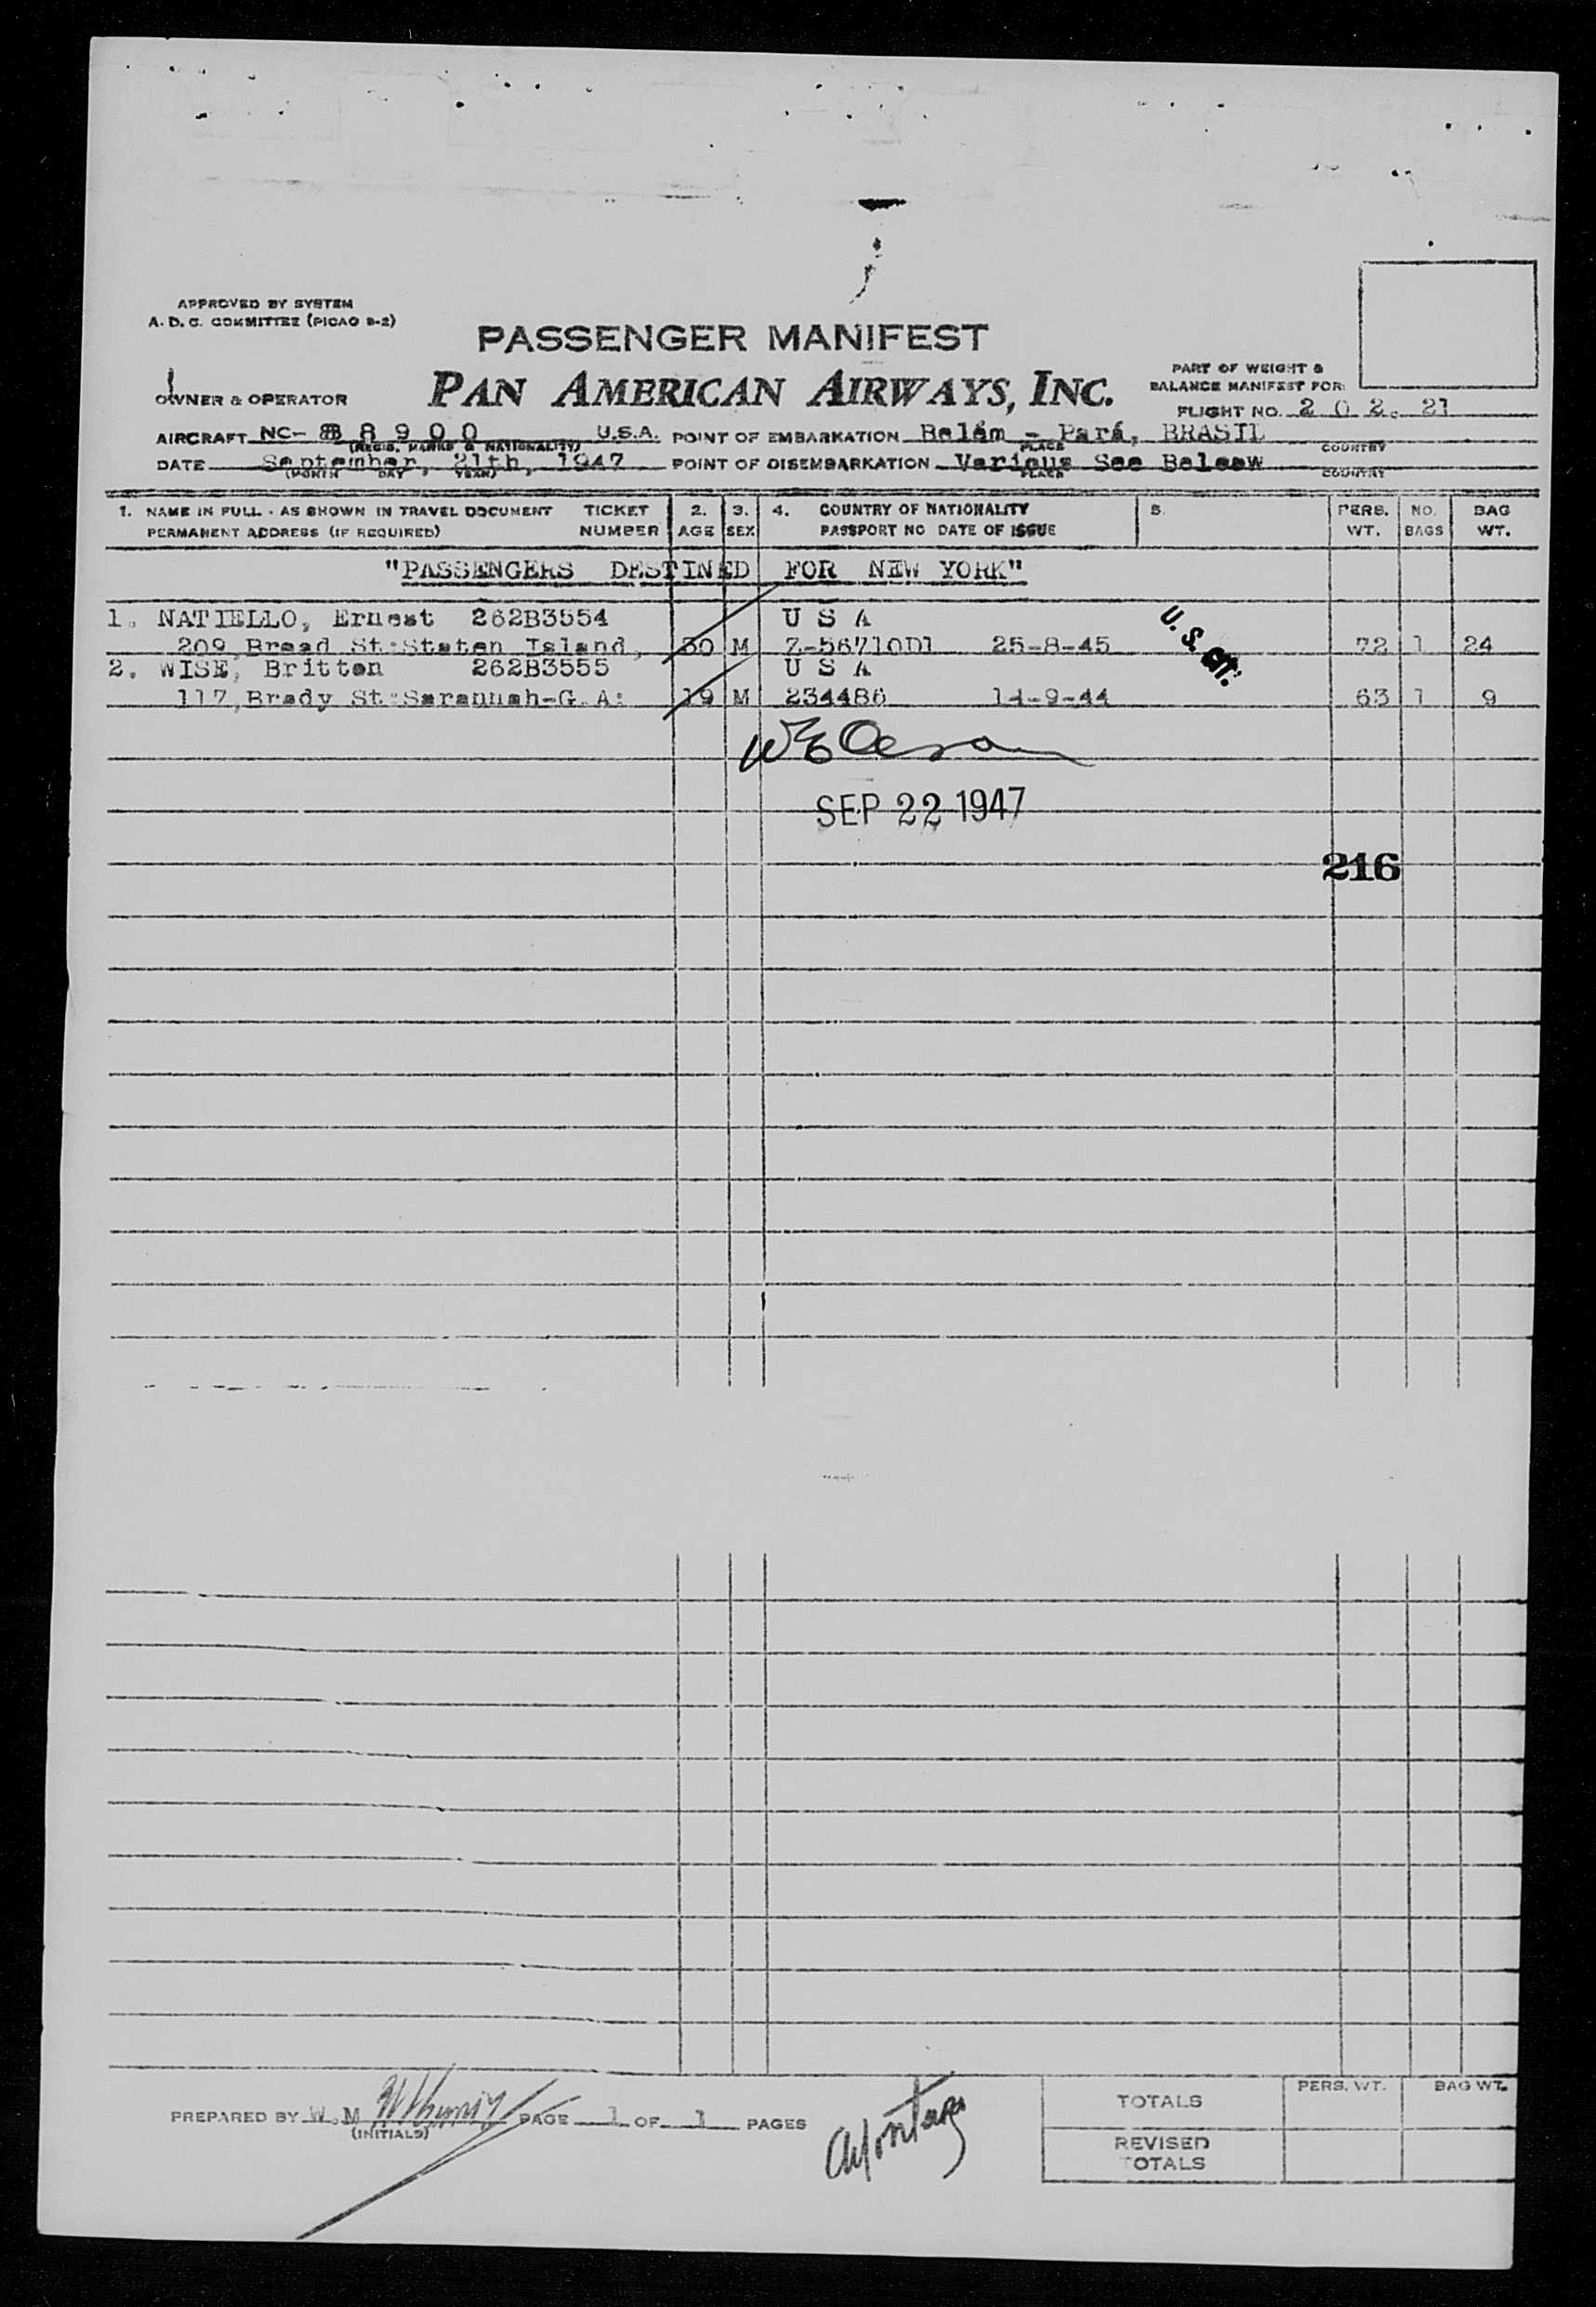 APPROVED BY SYSTEM
A. D. C. COMMITTEE (PICAO B-2)
PASSENGER MANIFEST
OWNER & OPERATOR
PAN AMERICAN AIRWAYS, INC.
PART OF WEIGHT &
BALANCE MANIFEST FOR:
FLIGHT NO. 2 0 2. 21
AIRCRAFT NC- 88900 U.S.A. POINT OF EMBARKATION Belém - Pará, BRASIL
(REGIS. MARKS & NATIONALITY) PLACE COUNTRY
DATE September, 21th, 1947 POINT OF DISEMBARKATION Various See Beloow
(MONTH DAY YEAR) PLACE COUNTRY
1. NAME IN FULL - AS SHOWN IN TRAVEL DOCUMENT TICKET 2. 3. 4. COUNTRY OF NATIONALITY 5. PERS. NO. BAG
PERMANENT ADDRESS (IF REQUIRED) NUMBER AGE SEX PASSPORT NO DATE OF ISSUE WT. BAGS WT.
"PASSENGERS DESTINED FOR NEW YORK"
1. NATIELLO, Ernest 262B3554 U S A
209, Broad St:Staten Island, 30 M Z-56710D1 25-8-45 72 1 24
U. S. cit.
2. WISE, Britton 262B3555 U S A
117, Brady St:Sarannah-G.A: 19 M 234486 14-9-44 63 1 9
SEP 22 1947
216
PREPARED BY W.M PAGE 1 OF 1 PAGES
(INITIALS)
PERS. WT. BAG WT.
TOTALS
REVISED
TOTALS